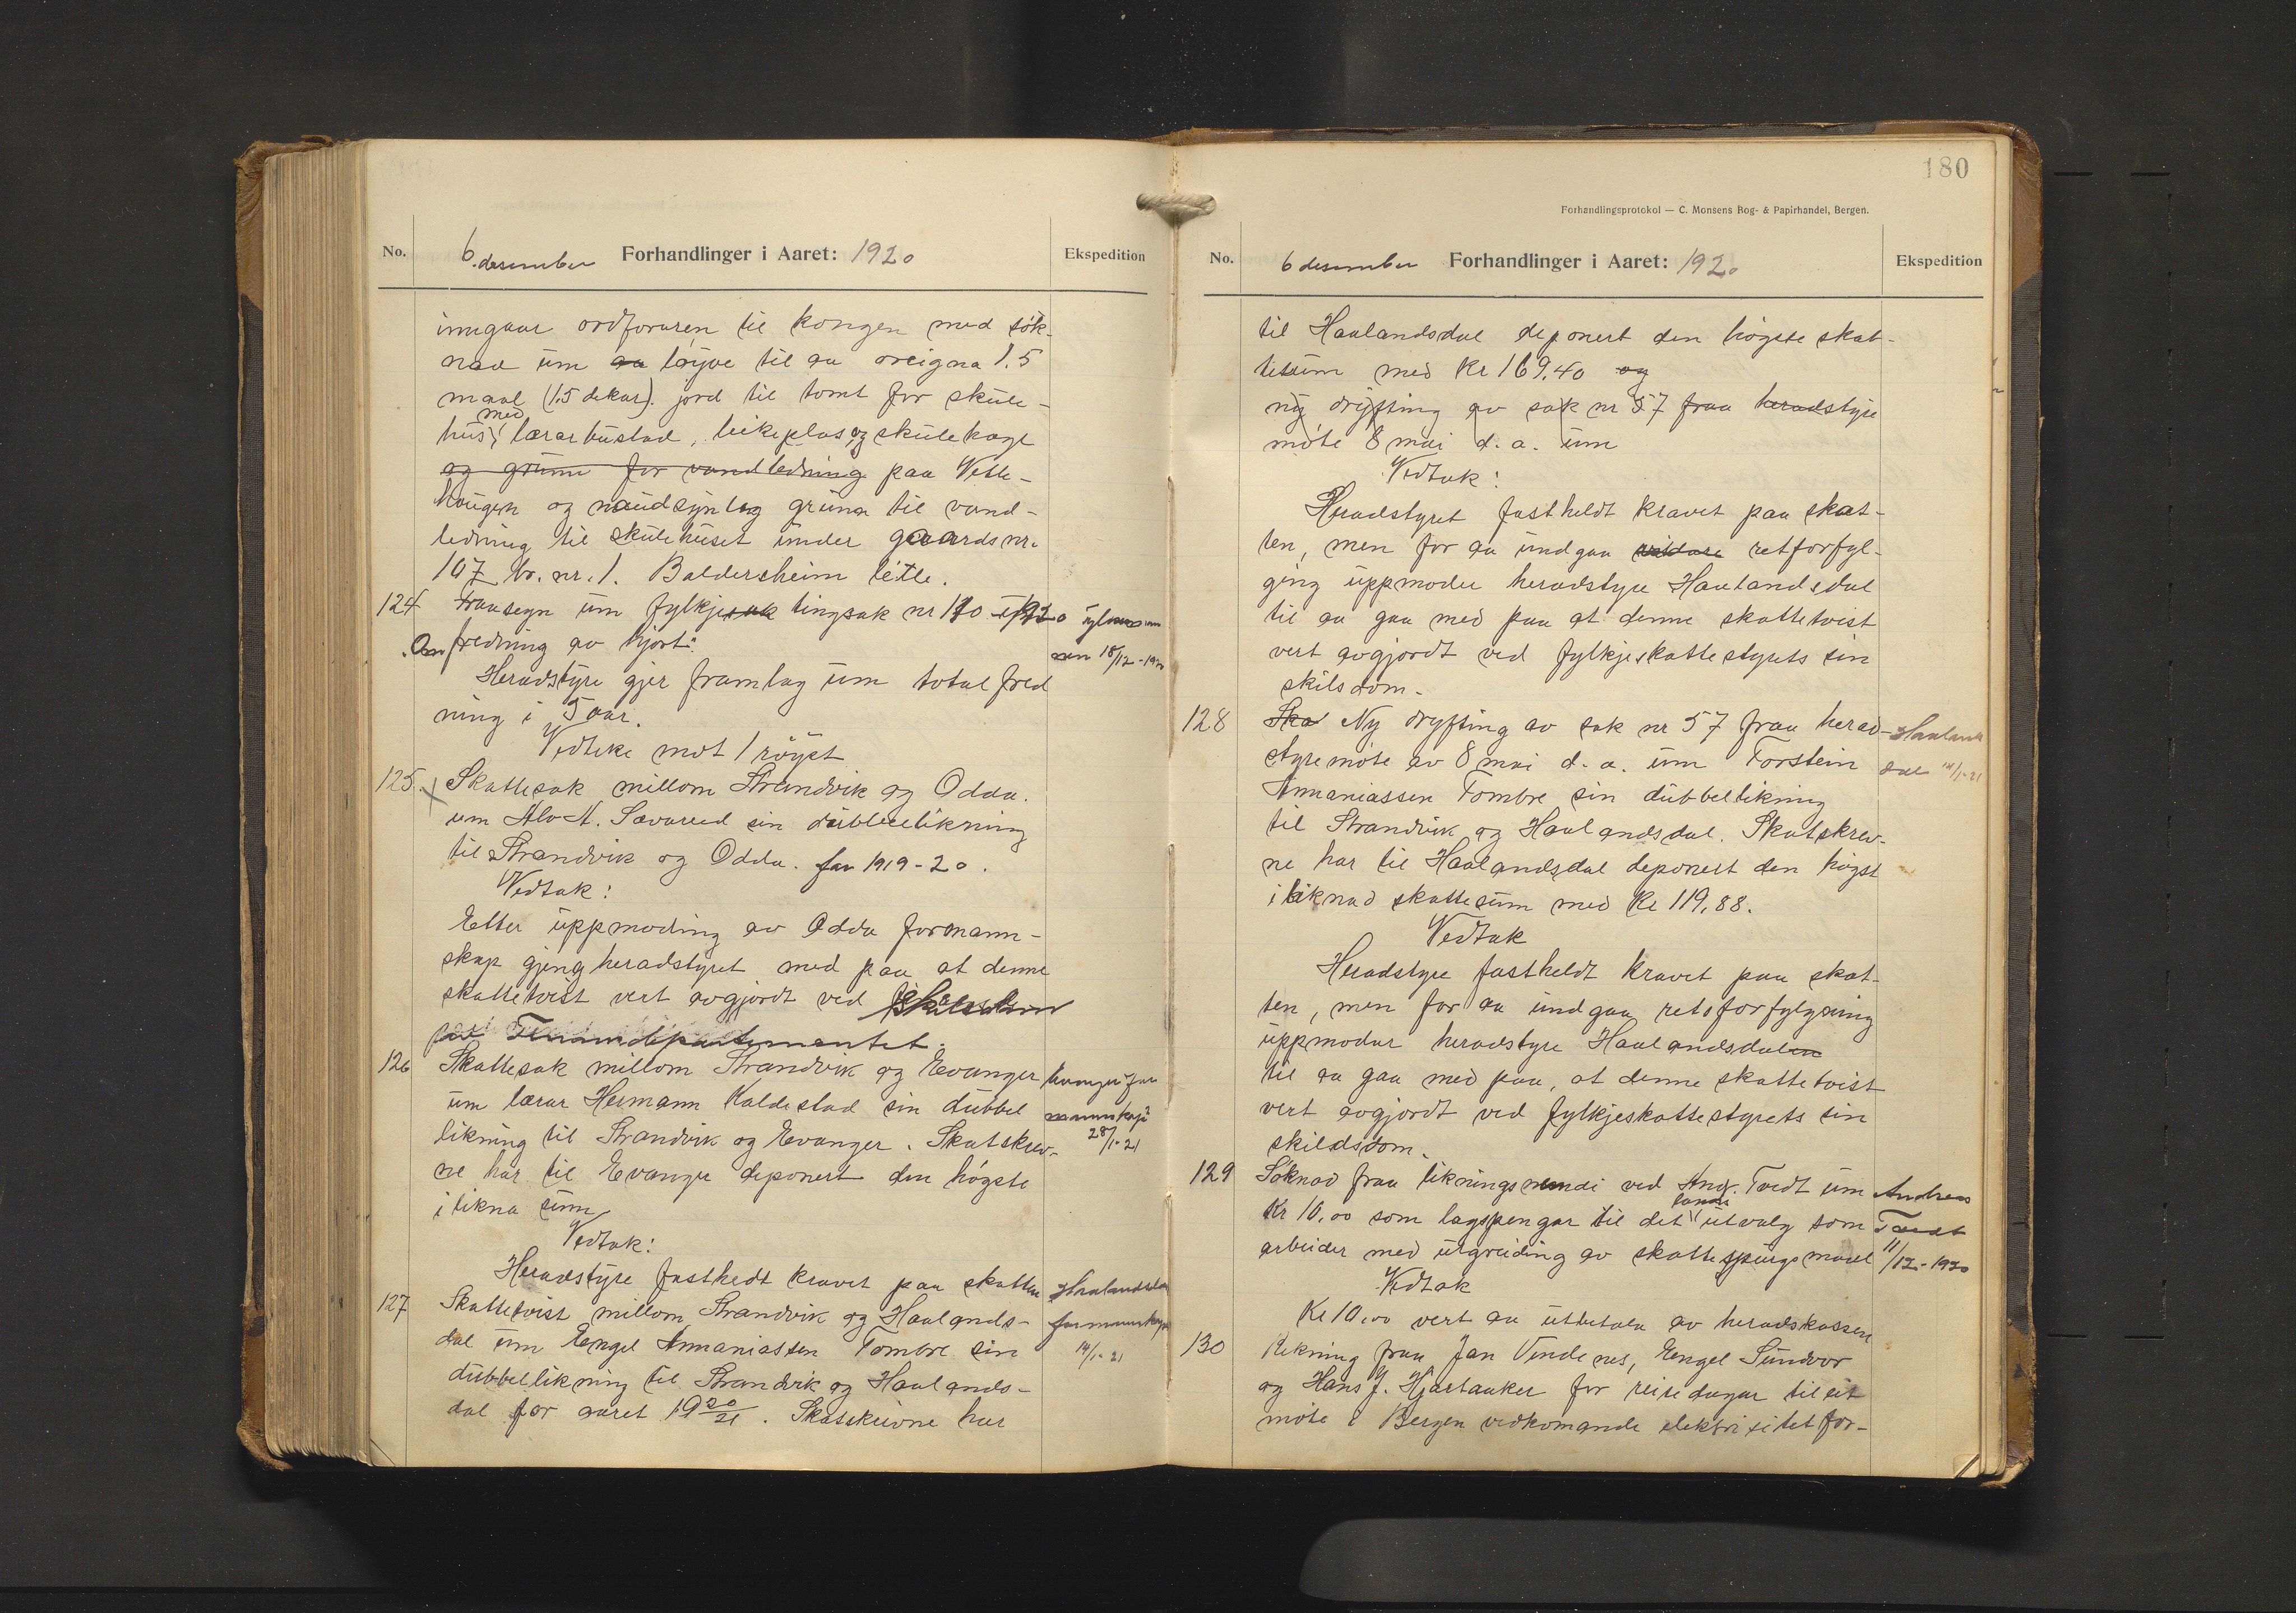 No.
6. desember Forhandlinger i Aaret: 1920
Ekspedition
inngaar ordføraren til kongen med søk-
nad um aa løyve til aa oreigna 1.5
maal (1.5 dekar). jord til tomt for skule-
hus med lærarbustad, leikeplas og skulehage
og grunn for vandledning paa Vetle-
haugen og naudsynleg grunn til vand-
ledning til skulehuset under gaardsnr.
107 br. nr. 1. Baldersheim litle.
124 Fraasegn um fylkjesak tingsak nr 170 i 1920
Om fredning av hjort.
Heradstyre gjer framlag um total fred
ning i 5 aar.
Vedteke mot 1 røyst
fylkesmannen 18/12-1920
125. Skattesak millom Strandvik og Odda.
um Alv A. Sævareid sin dubbellikning
til Strandvik og Odda. for 1919-20.
Vedtak:
Etter uppmoding av Odda formann-
skap gjeng heradstyret med paa at denne
skattetvist vert avgjordt ved skilsdom
fraa Finansdepartementet.
126 Skattesak millom Strandvik og Evanger
um lærar Hermann Kaldestad sin dubbel
likning til Strandvik og Evanger. Skatskrev-
ne har til Evanger deponert den høgste
ilikna sum
Vedtak:
Heradstyre fastheldt kravet paa skatten
Evanger for
mannskap
28/1-21
127 Skattetvist millom Strandvik og Haalands-
dal um Engel Annaniassen Tombre sin
dubbellikning til Strandvik og Haalands-
dal for aaret 1920/21. Skatskrivne har
Haalandsdal
formannskap
14/1-21
180
Forhandlingsprotokol — C. Monsens Bog- & Papirhandel, Bergen.
No.
6 desember Forhandlinger i Aaret: 1920
Ekspedition
til Haalandsdal deponert den høgste skat-
tesum med kr 169,40 og
ny drøfting av sak nr 57 fraa heradstyre
møte 8 mai d. a. um
Vedtak:
Heradstyret fastheldt kravet paa skat-
ten, men for aa undgaa vidare retforfyl-
ging uppmoder heradstyre Haalandsdal
til aa gaa med paa at denne skattetvist
vert avgjordt ved fylkjeskattestyrets sin
skilsdom.
128 Ska Ny dryfting av sak nr 57 fraa herad-
styremøte av 8 mai d. a. um Torstein
Annaniassen Tombre sin dubbellikning
til Strandvik og Haalandsdal. Skatskrev-
ne har til Haalandsdal deponert den høgst
iliknad skattesum med kr 119,88.
Haalands
dal 14/1-21
Vedtak
Heradstyre fastheldt kravet paa skat-
ten, men for aa undgaa retsforfylgning
uppmodar heradstyre Haalandsdalen
til aa gaa med paa, at denne skattetvist
vert avgjordt ved fylkjeskattestyrets sin
skildsdom.
129 Søknad fraa likningsnemdi ved And. Tvedt um
Kr 10,00 som lagspengar til det lands utvalg som
arbeider med utgreiding av skattespursmaal
Andreas
Tvedt
11/12-1920
Vedtak
Kr 10,00 vert aa utbetala av heradskassen
130 Rekning fraa Jan Vindenes, Engel Sundvor
og Hans J. Hjartaaker for reisedagar til eit
møte i Bergen vedkomande elektrisitetfor-